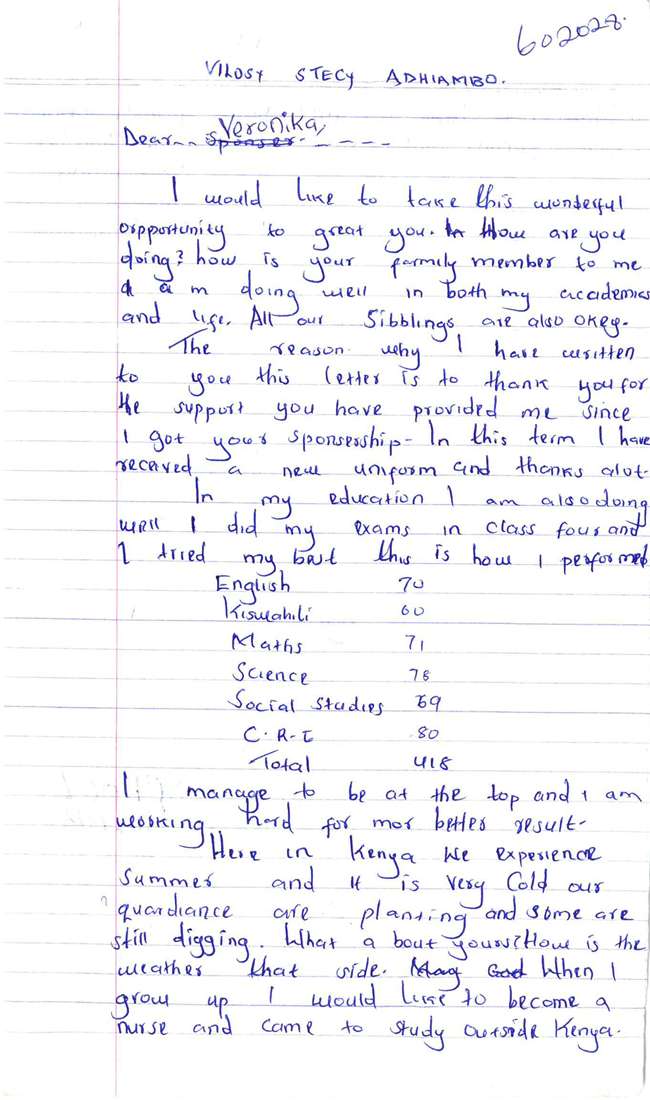 602028.
VILOSY STECY ADHIAMBO.
Veronika,
Dear--- sponser. - - - -
I would like to take this wonderful
orpportunity to great you. In How are you
doing? how is your farmily member to me
I a m doing well in both my academics
and life. All our Sibblings are also okey.
The reason why I have written
to you this letter is to thank you for
the support you have provided me since
I got your sponsership- In this term I have
receved a new uniform and thanks alot-
In my education I am also doing
well I did my exams in class four and
I tried my best this is how I performed
English 70
Kiswahili 60
Maths 71
Science 78
Social Studies 69
C.R-E 80
Total 418
I manage to be at the top and I am
working hard for mor better result-
Here in Kenya We experience
Summer and it is very Cold our
quardiance are planting and some are
still digging. What a bout yours? How is the
weather that side. May God When I
grow up I would like to become a
nurse and came to study outside Kenya.